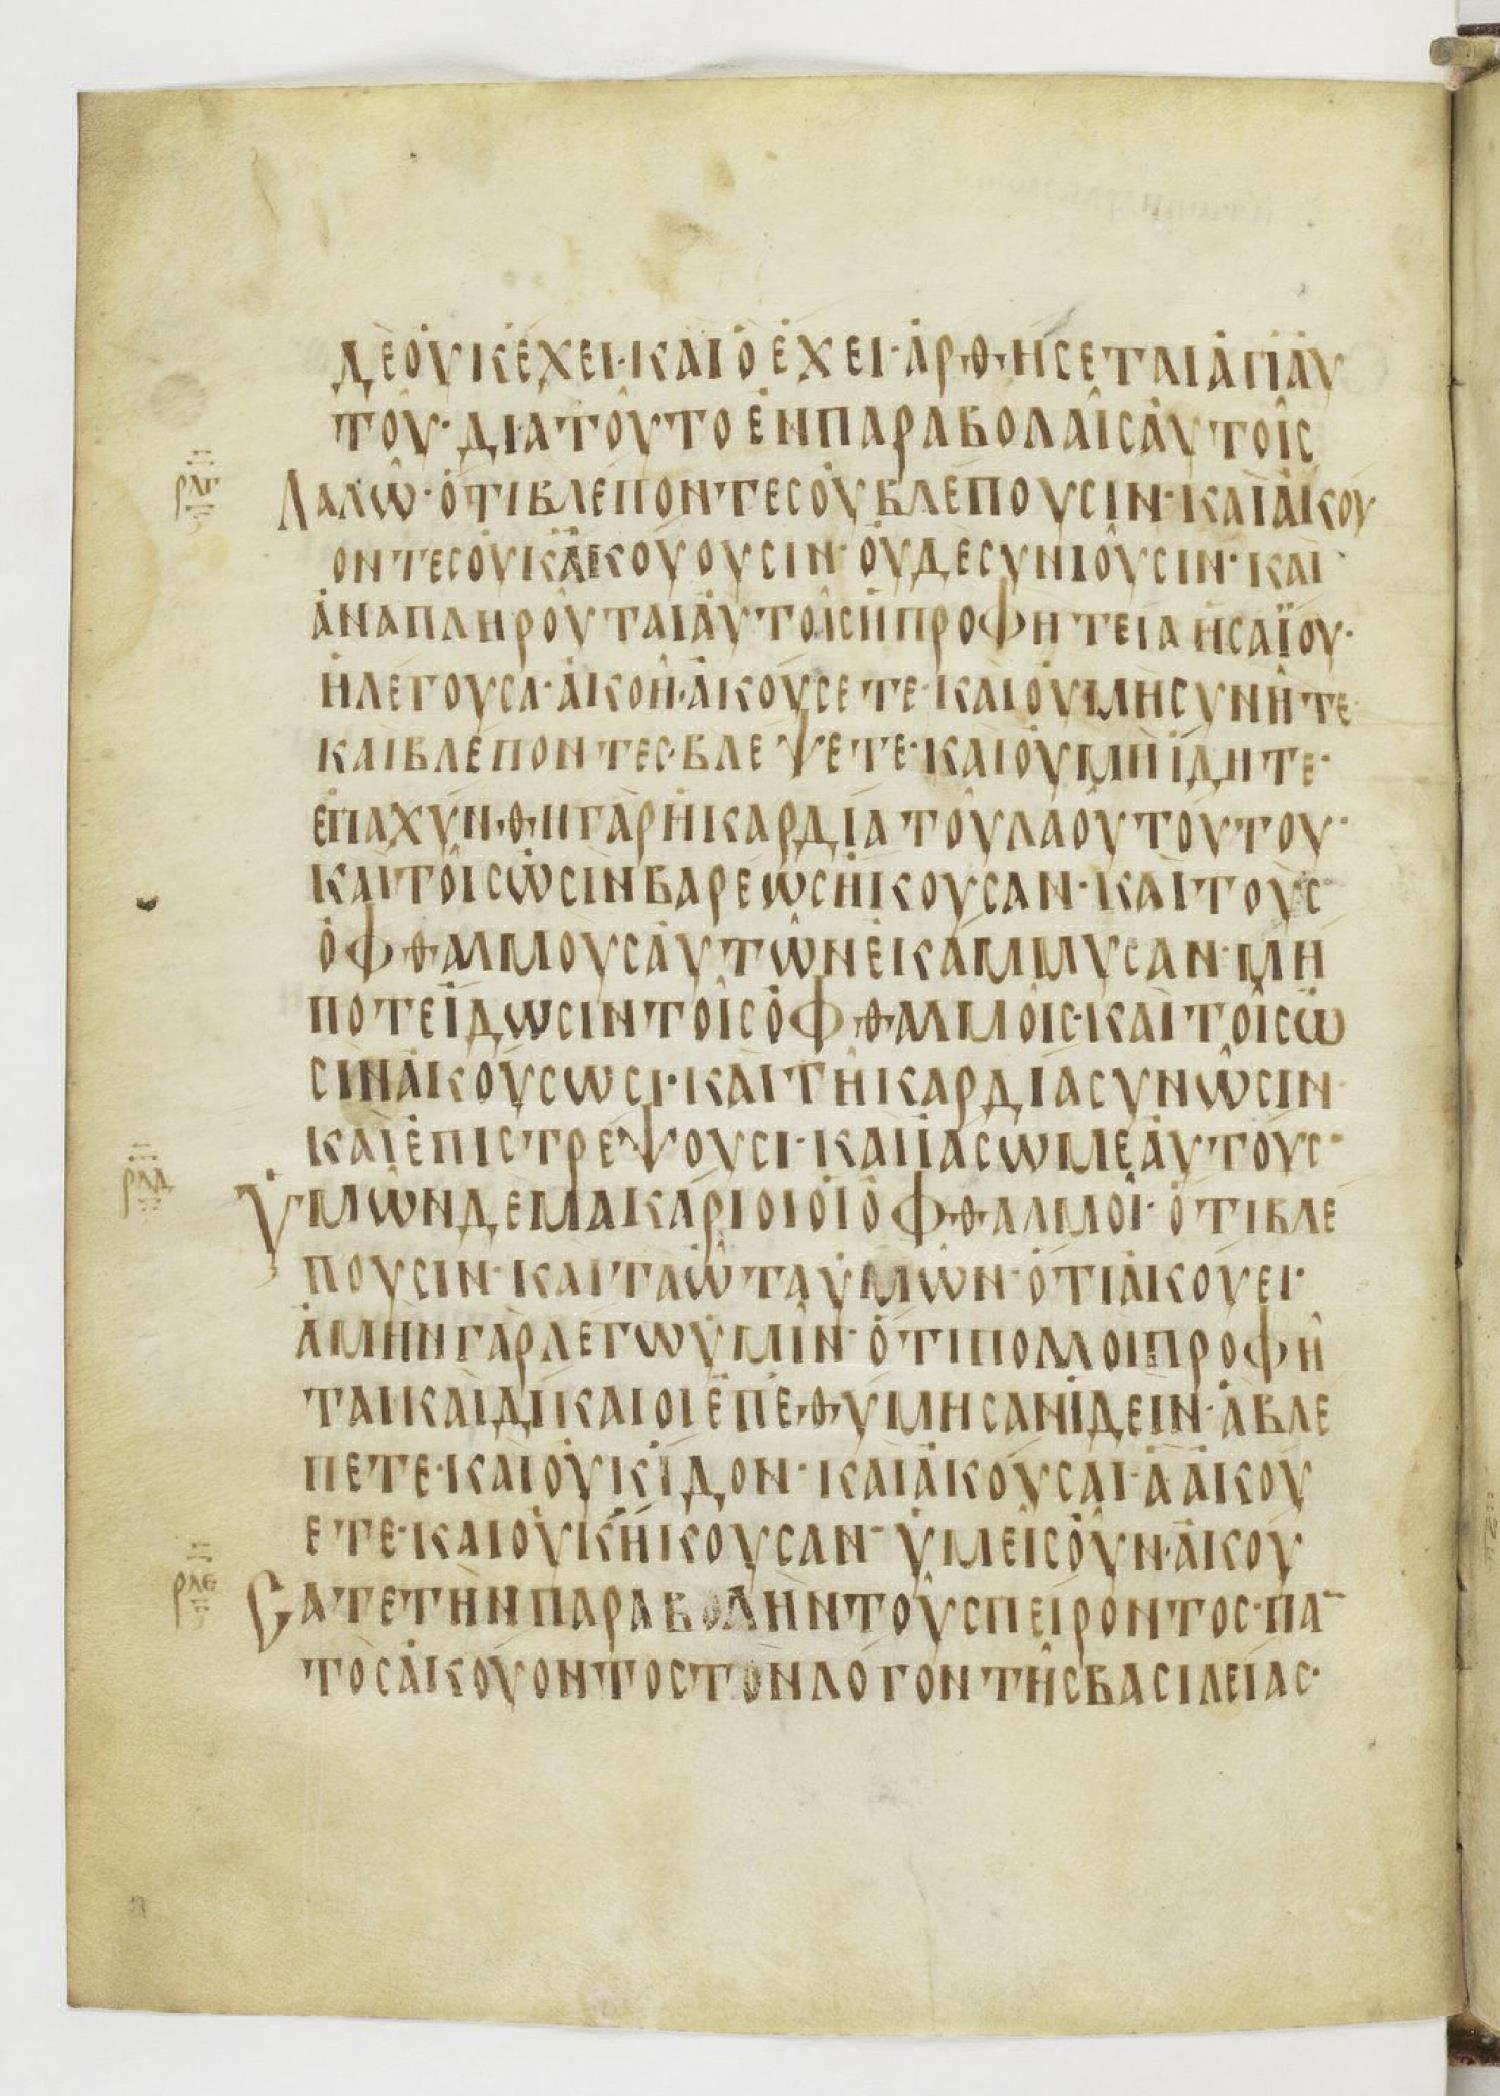 ΔΕΟΥΚΕΧΕΙ·ΚΑΙΟΕΧΕΙ·ΑΡΘΗΣΕΤΑΙΑΠΑΥ
ΤΟΥ·ΔΙΑΤΟΥΤΟΕΝΠΑΡΑΒΟΛΑΙΣΑΥΤΟΙΣ
ΡΛΓ
ΛΑΛΩ·ΟΤΙΒΛΕΠΟΝΤΕΣΟΥΒΛΕΠΟΥΣΙΝ·ΚΑΙΑΚΟΥ
ΟΝΤΕΣΟΥΚΑΚΟΥΟΥΣΙΝ·ΟΥΔΕΣΥΝΙΟΥΣΙΝ·ΚΑΙ
ΑΝΑΠΛΗΡΟΥΤΑΙΑΥΤΟΙΣΗΠΡΟΦΗΤΕΙΑΗΣΑΪΟΥ·
ΗΛΕΓΟΥΣΑ·ΑΚΟΗ·ΑΚΟΥΣΕΤΕ·ΚΑΙΟΥΜΗΣΥΝΗΤΕ
ΚΑΙΒΛΕΠΟΝΤΕΣ·ΒΛΕΨΕΤΕ·ΚΑΙΟΥΜΗΙΔΗΤΕ·
ΕΠΑΧΥΝΘΗΓΑΡΗΚΑΡΔΙΑΤΟΥΛΑΟΥΤΟΥΤΟΥ·
ΚΑΙΤΟΙΣΩΣΙΝΒΑΡΕΩΣΗΚΟΥΣΑΝ·ΚΑΙΤΟΥΣ
ΟΦΘΑΛΜΟΥΣΑΥΤΩΝΕΚΑΜΜΥΣΑΝ·ΜΗ
ΠΟΤΕΙΔΩΣΙΝΤΟΙΣΟΦΘΑΛΜΟΙΣ·ΚΑΙΤΟΙΣΩ
ΣΙΝΑΚΟΥΣΩΣΙ·ΚΑΙΤΗΚΑΡΔΙΑΣΥΝΩΣΙΝ
ΚΑΙΕΠΙΣΤΡΕΨΟΥΣΙ·ΚΑΙΙΑΣΩΜΕΑΥΤΟΥΣ·
ΡΛΔ
ΥΜΩΝΔΕΜΑΚΑΡΙΟΙΟΙΟΦΘΑΛΜΟΙ·ΟΤΙΒΛΕ
ΠΟΥΣΙΝ·ΚΑΙΤΑΩΤΑΥΜΩΝ·ΟΤΙΑΚΟΥΕΙ·
ΑΜΗΝΓΑΡΛΕΓΩΥΜΙΝ·ΟΤΙΠΟΛΛΟΙΠΡΟΦΗ
ΤΑΙΚΑΙΔΙΚΑΙΟΙΕΠΕΘΥΜΗΣΑΝΙΔΕΙΝ·ΑΒΛΕ
ΠΕΤΕ·ΚΑΙΟΥΚΙΔΟΝ·ΚΑΙΑΚΟΥΣΑΙ·ΑΑΚΟΥ
ΕΤΕ·ΚΑΙΟΥΚΗΚΟΥΣΑΝ·ΥΜΕΙΣΟΥΝ·ΑΚΟΥ
ΡΛΕ
ΣΑΤΕΤΗΝΠΑΡΑΒΟΛΗΝΤΟΥΣΠΕΙΡΟΝΤΟΣ·ΠΑ
ΤΟΣΑΚΟΥΟΝΤΟΣΤΟΝΛΟΓΟΝΤΗΣΒΑΣΙΛΕΙΑΣ·